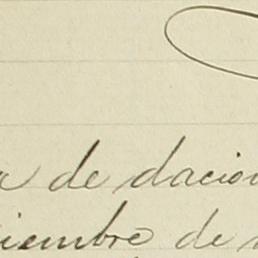 a de dacion
iembre de